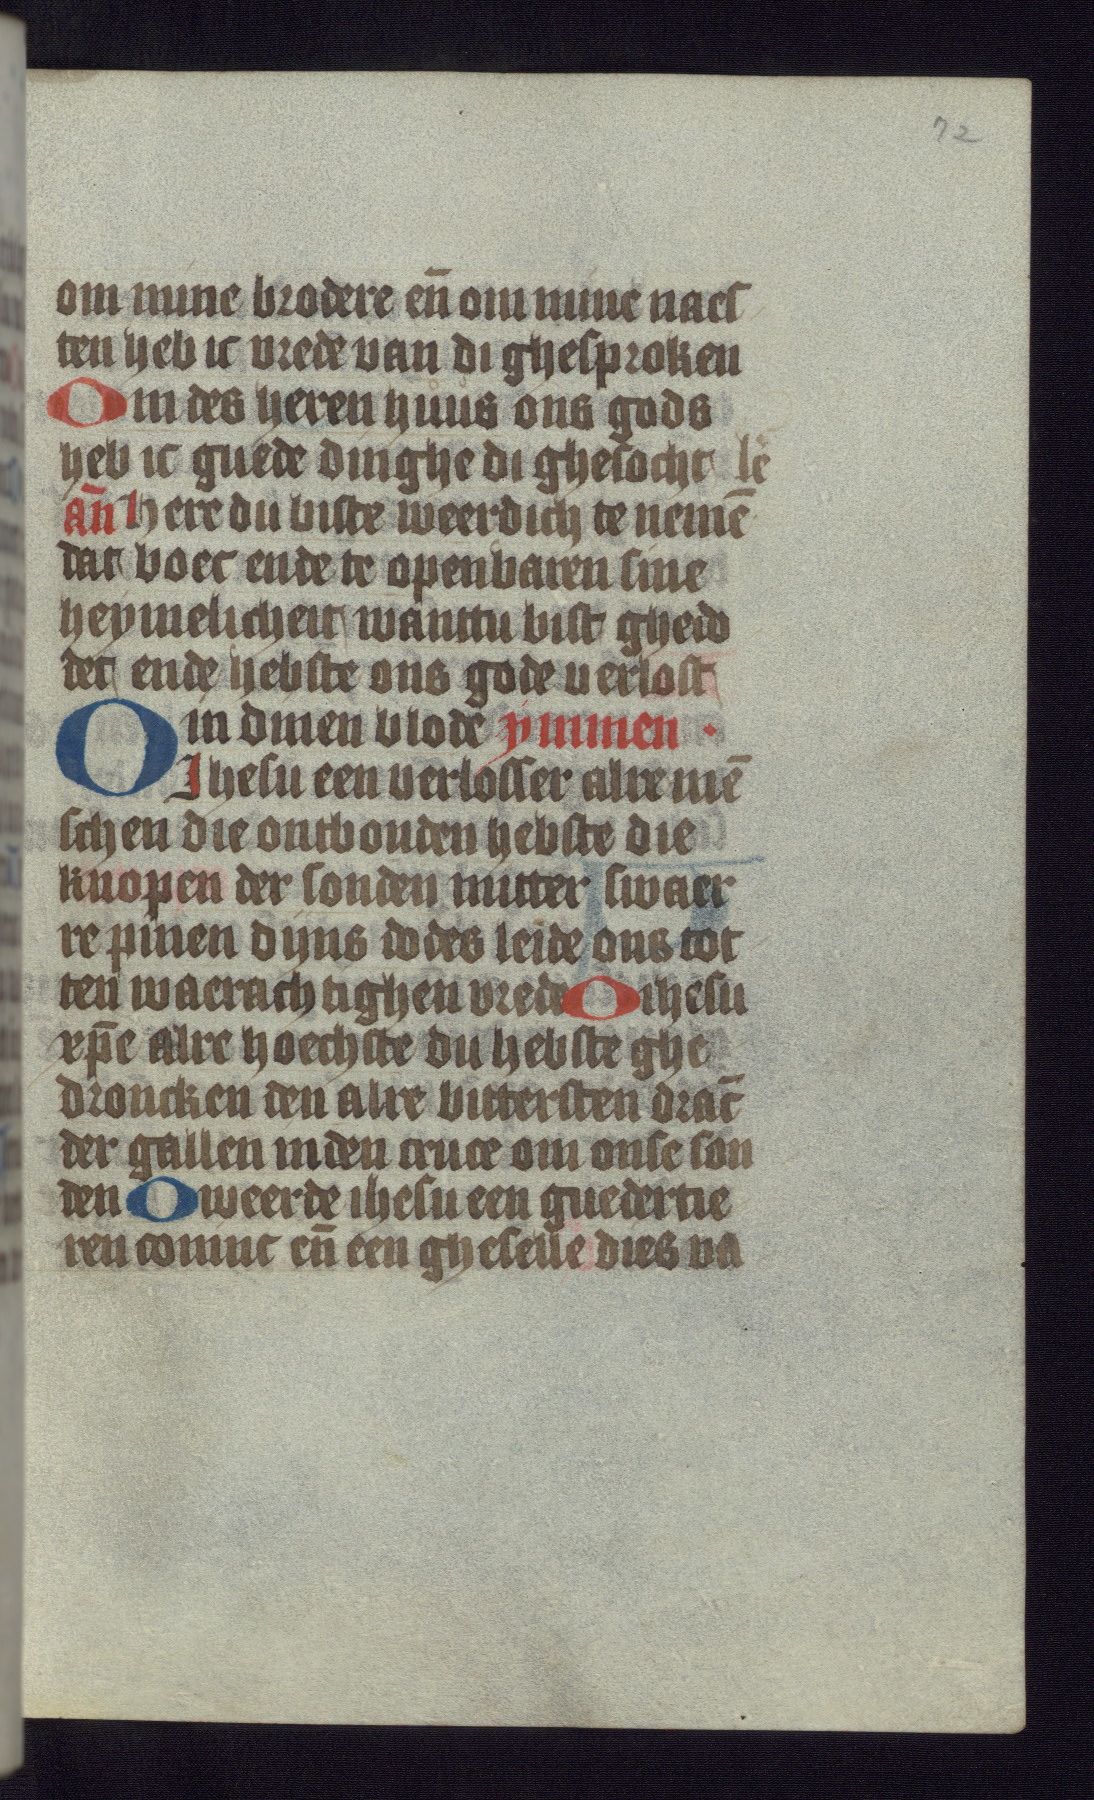 72
om mine brodere en̄ om mine naes
ten heb ic vrede van di ghesproken
Om des heren huus ons gods
heb ic guede dinghe di ghesocht le
an̄ Here du biste weerdich te nemē
dat boec ende te openbaren sine
heymelicheit wanttu bist ghedo
det ende hebste ons gode verlost
in dinen blode ymmen
O Ihesu een verlosser alre mē
schen die ontbonden hebste die
knopen der sonden mitter swaer
re pinen dyns dodes leide ons tot
ten waerachtighen vrede O ihesu
xpē alre hoechste du hebste ghe
droncken den alre bittersten drāc
der gallen inden cruce om onse son
den O weerde ihesu een guedertie
ren coninc en̄ een gheselle dies va